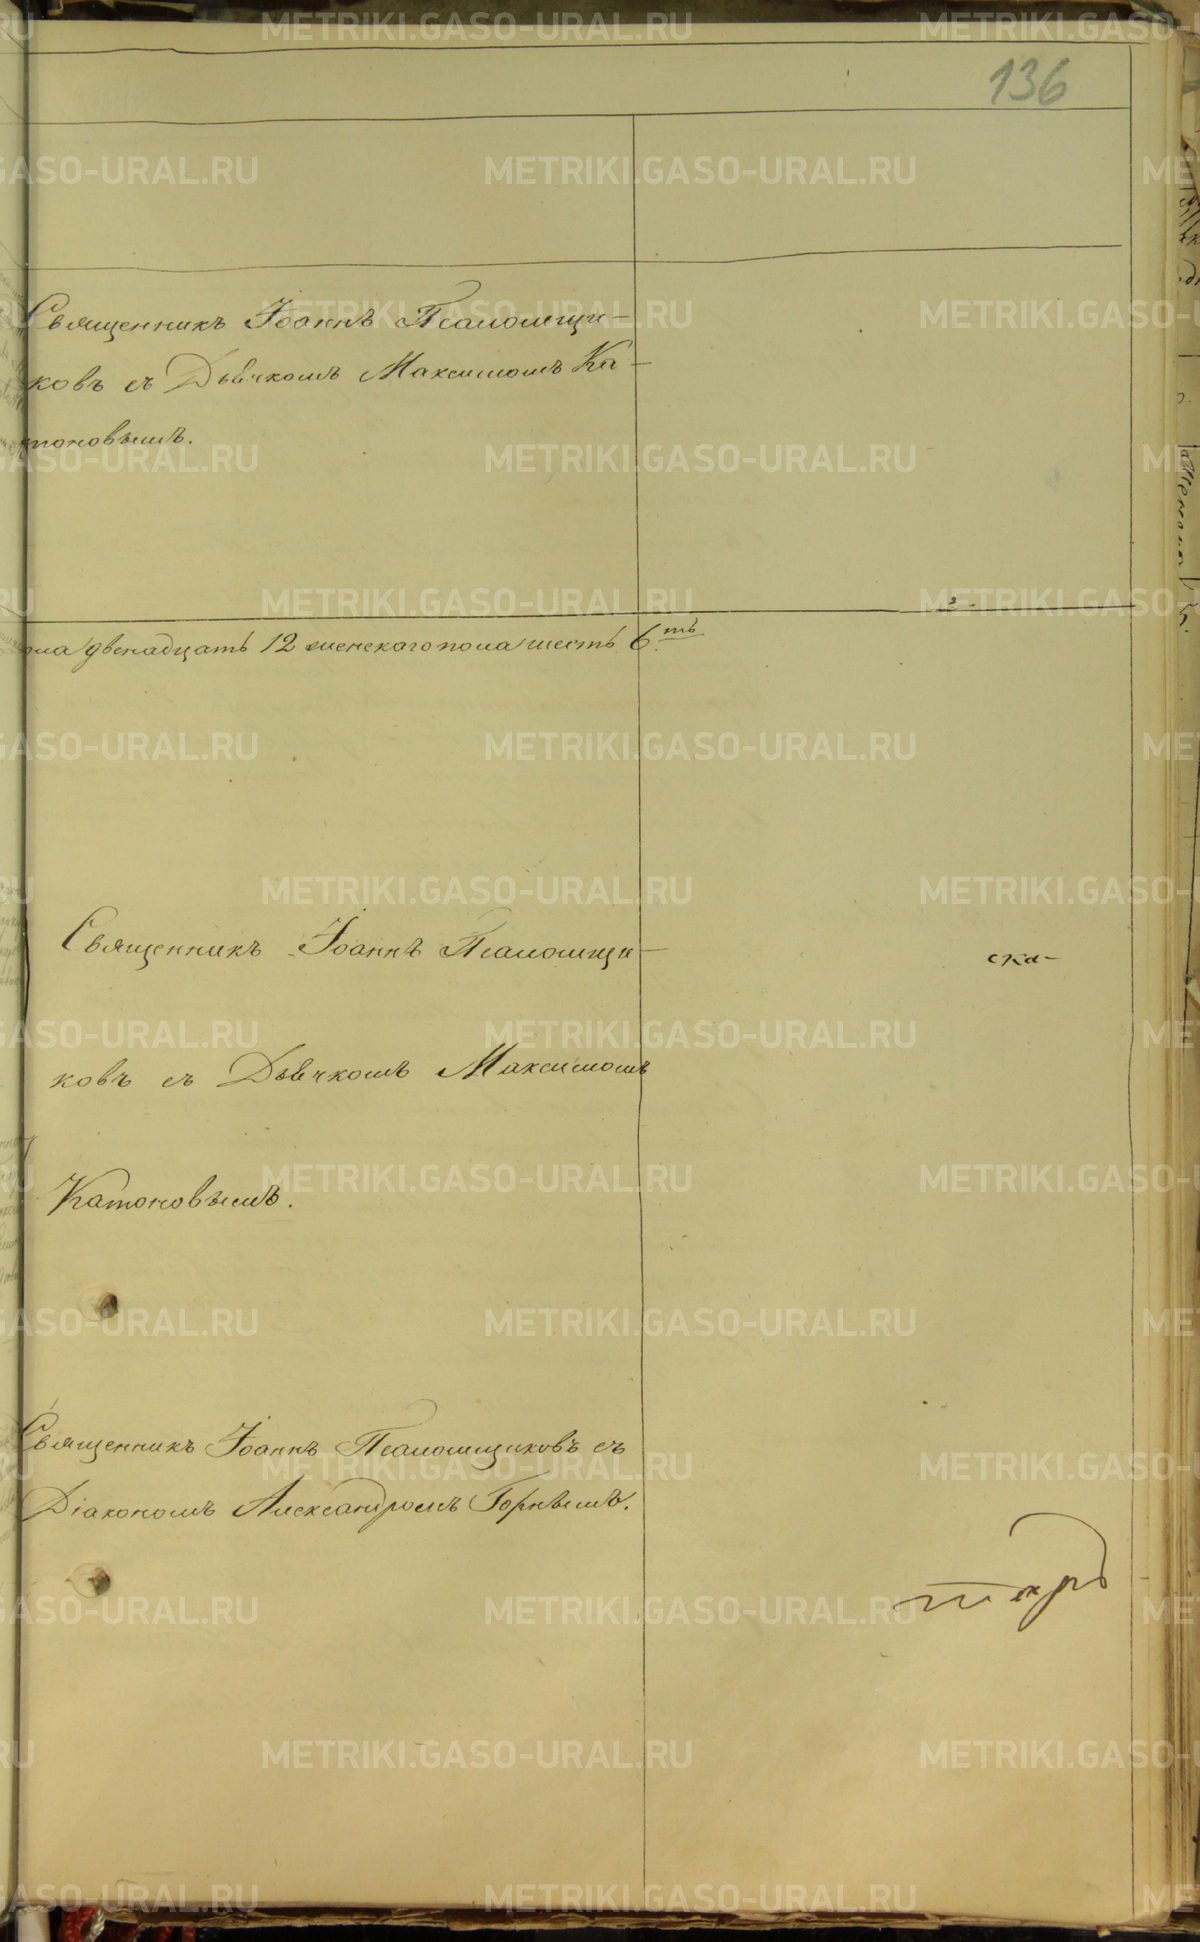 136
Священникъ Іоаннъ Псаломщи-
ковъ съ Дьячкомъ Максимомъ Ка-
тоновымъ.
двенадцать 12 женскаго пола шесть 6.ть
Священникъ Іоаннъ Псаломщи-
ска-
ковъ съ Дьячкомъ Максимомъ
Катоновымъ.
Священникъ Іоаннъ Псаломщиковъ съ
Діакономъ Александромъ Горнымъ.
METRIKI.GASO-URAL.RU